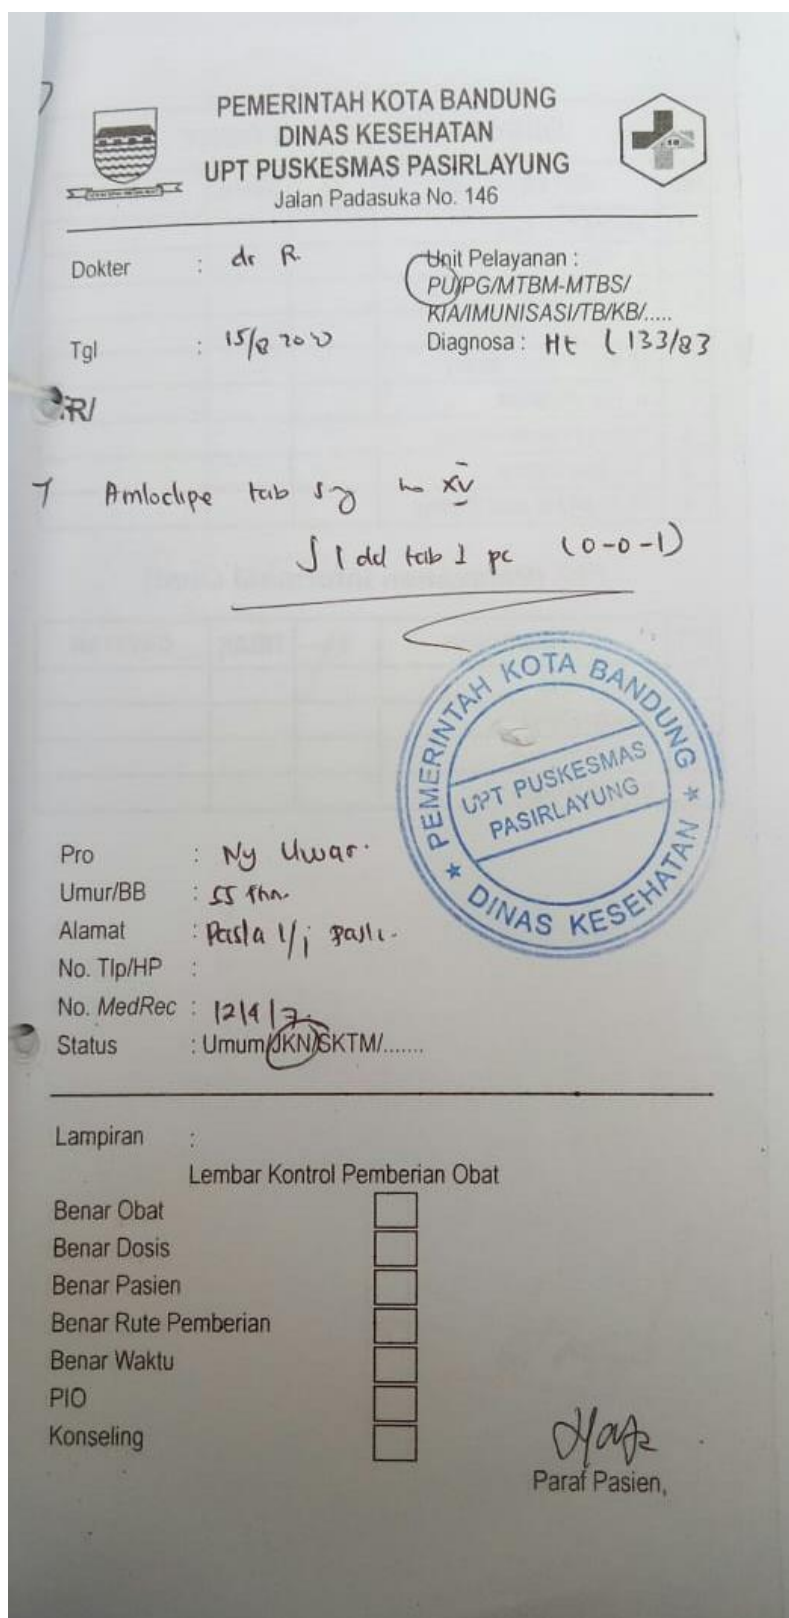 PEMERINTAH KOTA BANDUNG
DINAS KESEHATAN
UPT PUSKESMAS PASIRLAYUNG
Jalan Padasuka No. 146
Dokter : dr R.
Unit Pelayanan :
PU/PG/MTBM-MTBS/
KIA/IMUNISASI/TB/KB/.....
Tgl : 15/8
Diagnosa : Ht (133/83
R/
Amlodipe tab XV
1 dd tab 1 pc (0-0-1)
PEMERINTAH KOTA BANDUNG
UPT PUSKESMAS
PASIRLAYUNG
DINAS KESEHATAN
Pro : Ny Uwar.
Umur/BB : 55 thn.
Alamat :
No. Tlp/HP :
No. MedRec :
Status : Umum/JKN/SKTM/.......
Lampiran :
Lembar Kontrol Pemberian Obat
Benar Obat
Benar Dosis
Benar Pasien
Benar Rute Pemberian
Benar Waktu
PIO
Konseling
Paraf Pasien,